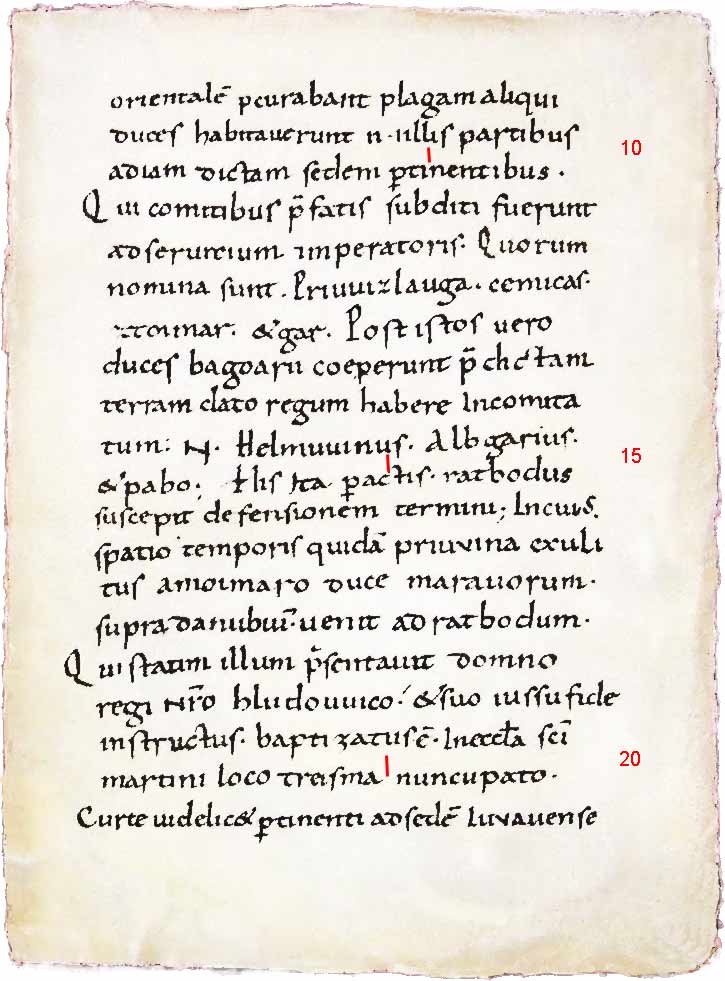 orientalē pcurabant plagam aliqui
duces habitauerunt n illis partibus
adiam dictam sedem ptinentibus .
Qui comitibus p̄fatis subditi fuerunt
ad seruitium imperatoris. Quorum
nomina sunt. Priuuizlauga. cemicas.
ztoimar. &gar. Post istos uero
duces bagoarii coeperunt p̄dictam
terram dato regum habere Incomita
tum: N. Helmuuinus. Albgarius.
&pabo; His Ita pactis. ratbodus
suscepit defensionem termini; Incuis,
spatio temporis quidā priuuina exuli
tus amoimaro duce marauorum.
supra danubiū. uenit ad ratbodum.
Qui statim illum p̄sentauit domno
regi nr̄o hludouuico. &suo iussu fide
instructus. baptizatus ē. In eccla sci
martini loco treisma nuncupato.
Curte uidelic& ptinenti ad sedē Iuuauense
10
15
20